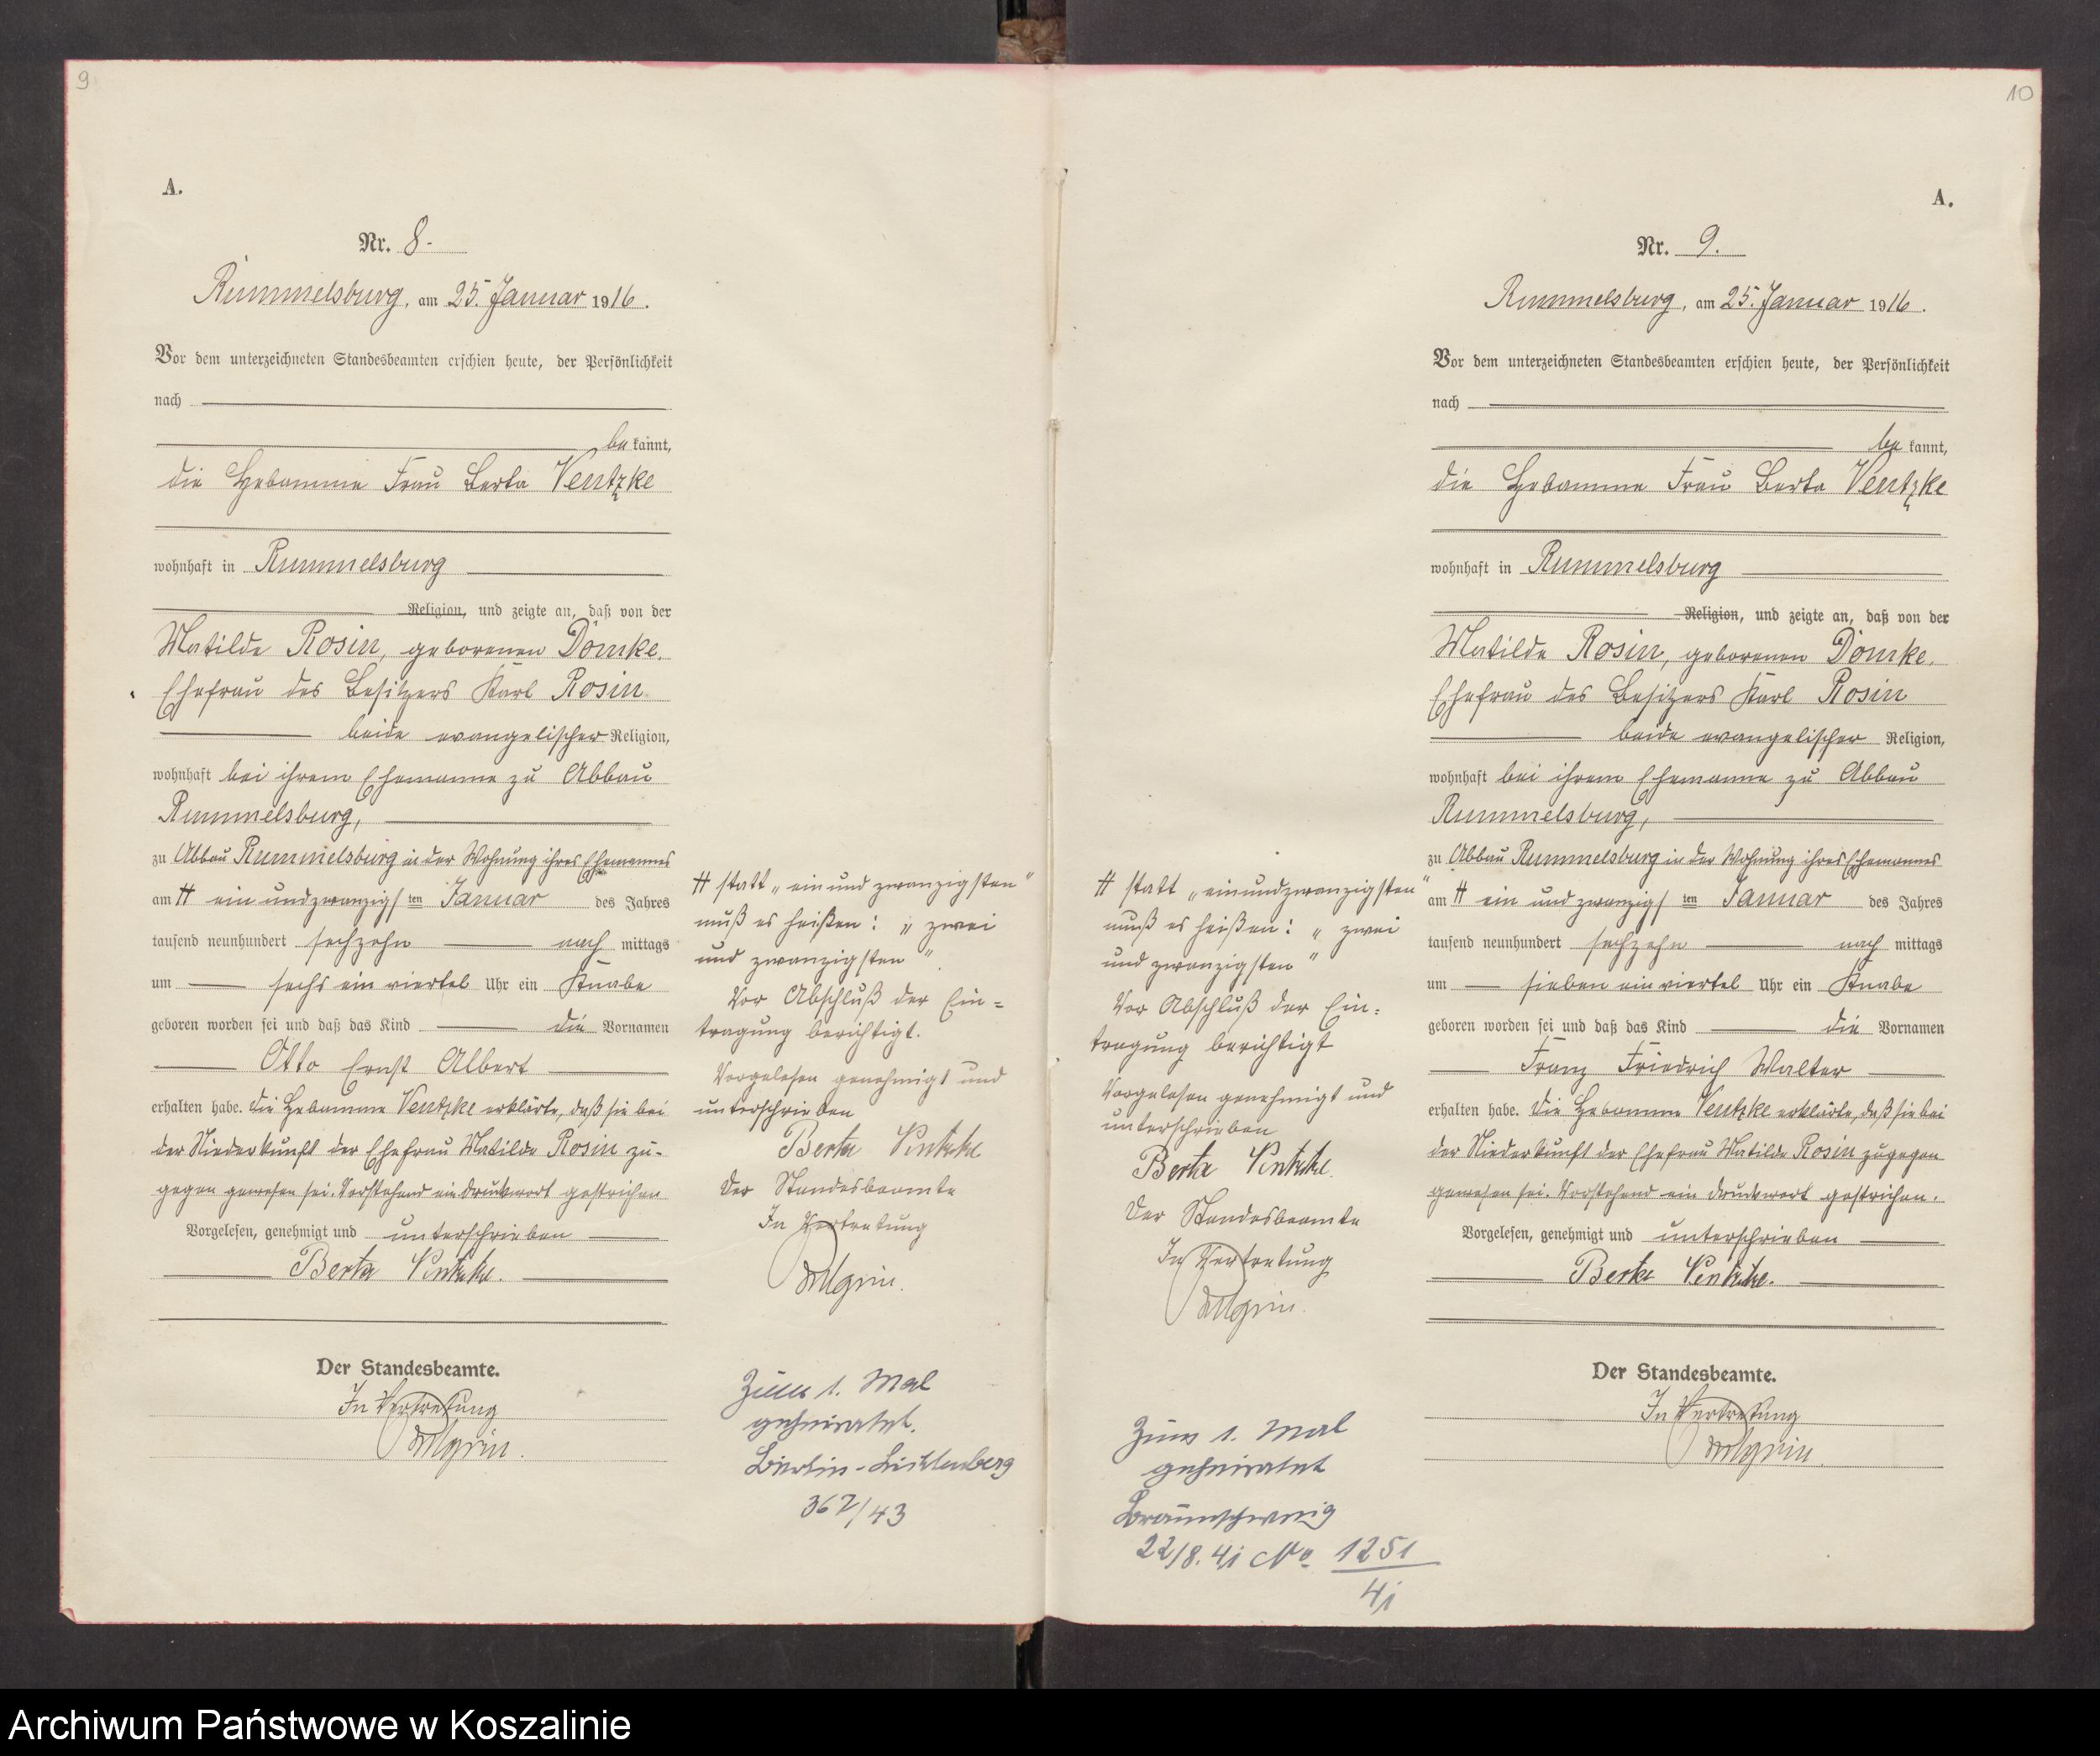 9
A.
Nr. 8.
Rummelsburg, am 25. Januar 1916.
Vor dem unterzeichneten Standesbeamten erschien heute, der Persönlichkeit
nach
be kannt,
die Hebamme Frau Berta Ventzke
wohnhaft in Rummelsburg
Religion, und zeigte an, daß von der
Matilde Rosin, geborenen Domke.
Ehefrau des Besitzers Karl Rosin
beide evangelischer Religion,
wohnhaft bei ihrem Ehemanne zu Abbau
Rummelsburg,
zu Abbau Rummelsburg in der Wohnung ihres Ehemannes
am # ein und zwanzigs ten Januar des Jahres
tausend neunhundert sechzehn nach mittags
um sechs ein viertel Uhr ein Knabe
geboren worden sei und daß das Kind die Vornamen
Otto Ernst Albert
erhalten habe. Die Hebamme Ventzke erklärte, daß sie bei
der Niederkunft der Ehefrau Matilde Rosin zu-
gegen gewesen sei. Vorstehend ein Druckwort gestrichen
Vorgelesen, genehmigt und unterschrieben
Berta Ventzke.
Der Standesbeamte.
In Vertretung
# statt „einund zwanzigsten"
muß es heißen: „zwei
und zwanzigsten".
Vor Abschluß der Ein=
tragung berichtigt.
Vorgelesen genehmigt und
unterschrieben
Berta Ventzke
Der Standesbeamte
In Vertretung
Zum 1. Mal
geheiratet.
Berlin-Lichtenberg
367/43
10
A.
Nr. 9.
Rummelsburg, am 25. Januar 1916.
Vor dem unterzeichneten Standesbeamten erschien heute, der Persönlichkeit
nach
be kannt,
die Hebamme Frau Berta Ventzke
wohnhaft in Rummelsburg
Religion, und zeigte an, daß von der
Matilde Rosin, geborenen Domke.
Ehefrau des Besitzers Karl Rosin
beide evangelischer Religion,
wohnhaft bei ihrem Ehemanne zu Abbau
Rummelsburg,
zu Abbau Rummelsburg in der Wohnung ihres Ehemannes
am # ein und zwanzigs ten Januar des Jahres
tausend neunhundert sechzehn nach mittags
um sieben ein viertel Uhr ein Knabe
geboren worden sei und daß das Kind die Vornamen
Franz Friedrich Walter
erhalten habe. Die Hebamme Ventzke erklärte, daß sie bei
der Niederkunft der Ehefrau Matilde Rosin zugegen
gewesen sei. Vorstehend ein Druckwort gestrichen.
Vorgelesen, genehmigt und unterschrieben
Berta Ventzke.
Der Standesbeamte.
In Vertretung
# statt „einundzwanzigsten"
muß es heißen: „zwei
und zwanzigsten"
Vor Abschluß der Ein=
tragung berichtigt
Vorgelesen genehmigt und
unterschrieben
Berta Ventzke.
Der Standesbeamte
In Vertretung
Zum 1. Mal
geheiratet
Braunschweig
22/8. 41 No 1251
41
Archiwum Państwowe w Koszalinie